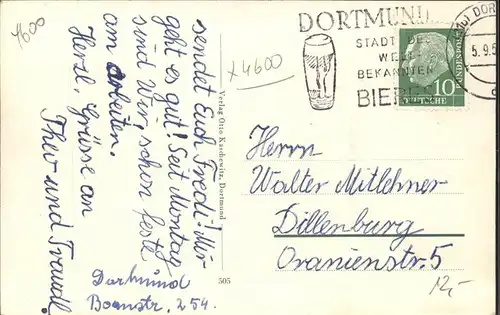 4600
sendet Euch Fredi! Mir
geht es gut! Seit Montag
sind Wir schon feste
am arbeiten.
Herzl. Grüsse an
Theo und Traudl.
Dortmund
Bornstr. 254.
Verlag Otto Kaschewitz, Dortmund
505
x4600
DORTMUND
STADT DES
WELT
BEKANNTEN
BIERES
DOR
5.9.5
d
10
DEUTSCHE
BUNDESPOST
Herrn
Walter Mitlehner
Dillenburg
Oranienstr. 5
12,-